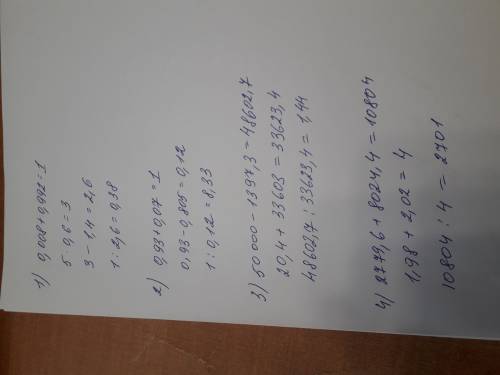 1) 0,008+0,992=1
5·0,6=3
3-1,4=2,6
1:2,6=0,38
2) 0,93+0,07=1
0,93-0,805=0,12
1:0,12=8,33
3) 50000-1397,3=48602,7
20,4+33603=33623,4
48602,7:33623,4=1,44
4) 2779,6+8024,4=10804
1,98+2,02=4
10804:4=2701